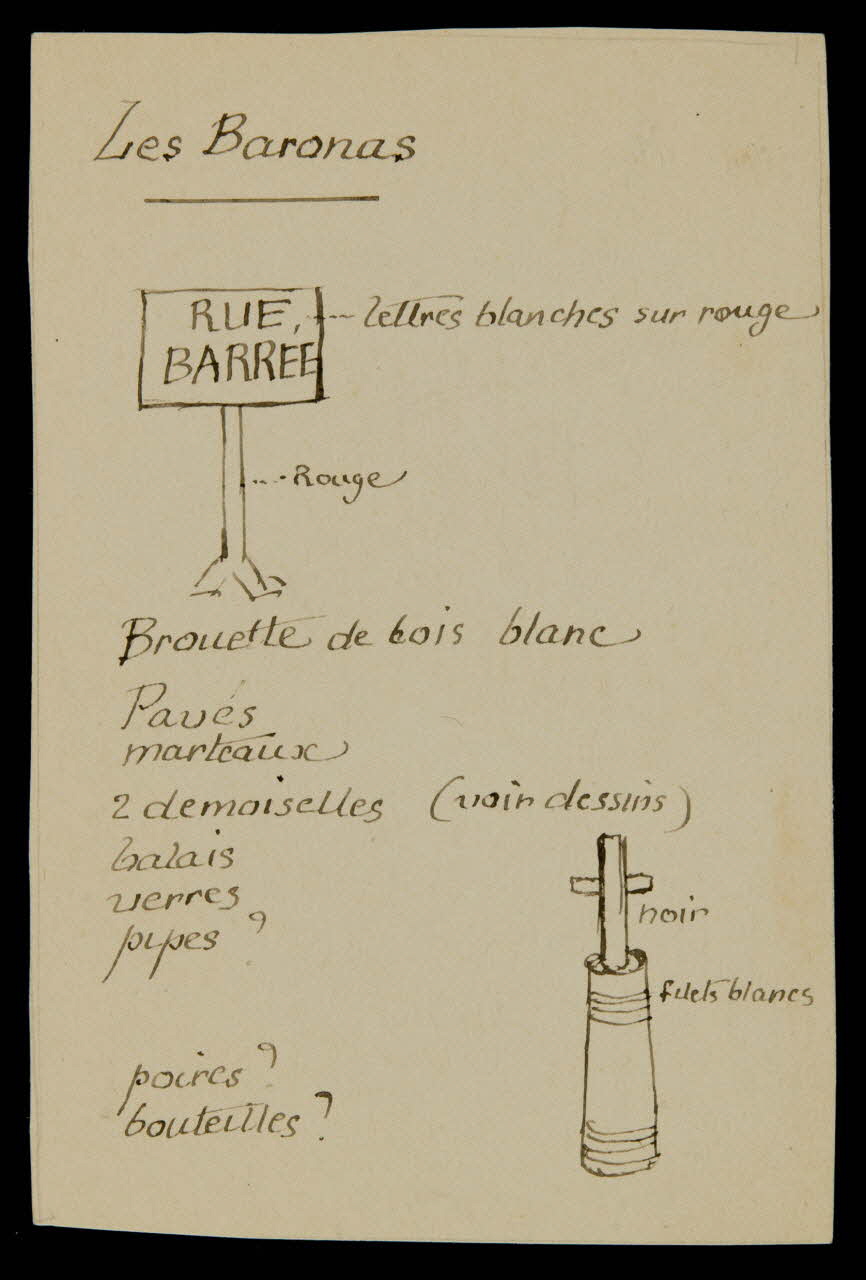 Les Baronas
RUE, lettres blanches sur rouge
BARREE
Rouge
Brouette de bois blanc
Pavés
marteaux
2 demoiselles (voir dessins)
balais
verres
pipes ?
noir
filets blancs
poires ?
bouteilles ?